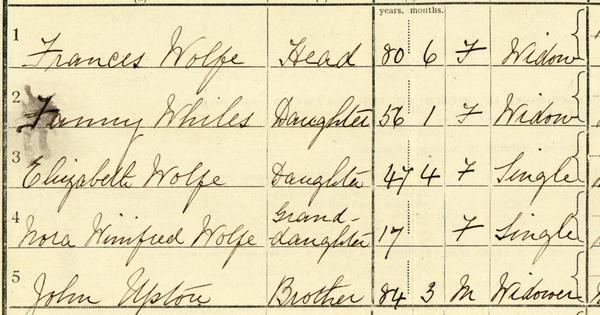 years. months.
1 Frances Wolfe Head 80 6 F Widow
2 Fanny Whiles Daughter 56 1 F Widow
3 Elizabeth Wolfe Daughter 47 4 F Single
4 Nora Winifred Wolfe Grand-
daughter 17 F Single
5 John Upston Brother 84 3 M Widower